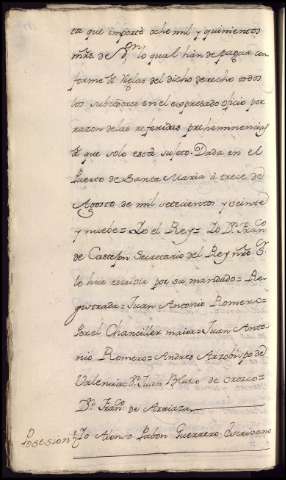 ta que importó ocho mil y quinientos
mrs. de Vn. lo qual han de pagar con
forme à reglas del dicho derecho todos
los subcesores en el expresado oficio por
razon de las referidas prehemnencias
à que solo está sujeto. Dada en el
Puerto de Santa Maria à trece de
Agosto de mil setecientos y veinte
y nuebe = Yo el Rey = Yo Dn. Franco.
de Castejon Secretario del Rey nro. Sr.
le hice escribir por su mandado = Re
gistrada = Juan Antonio Romero =
Por el Chanciller maior = Juan Anto
nio Romero = Andres Arzobispo de
Valencia = Dn. Juan Blasco de Orozco =
Dn. Franco. de Arriaza
Posesion Yo Alonso Pabon Guerrero Escribano